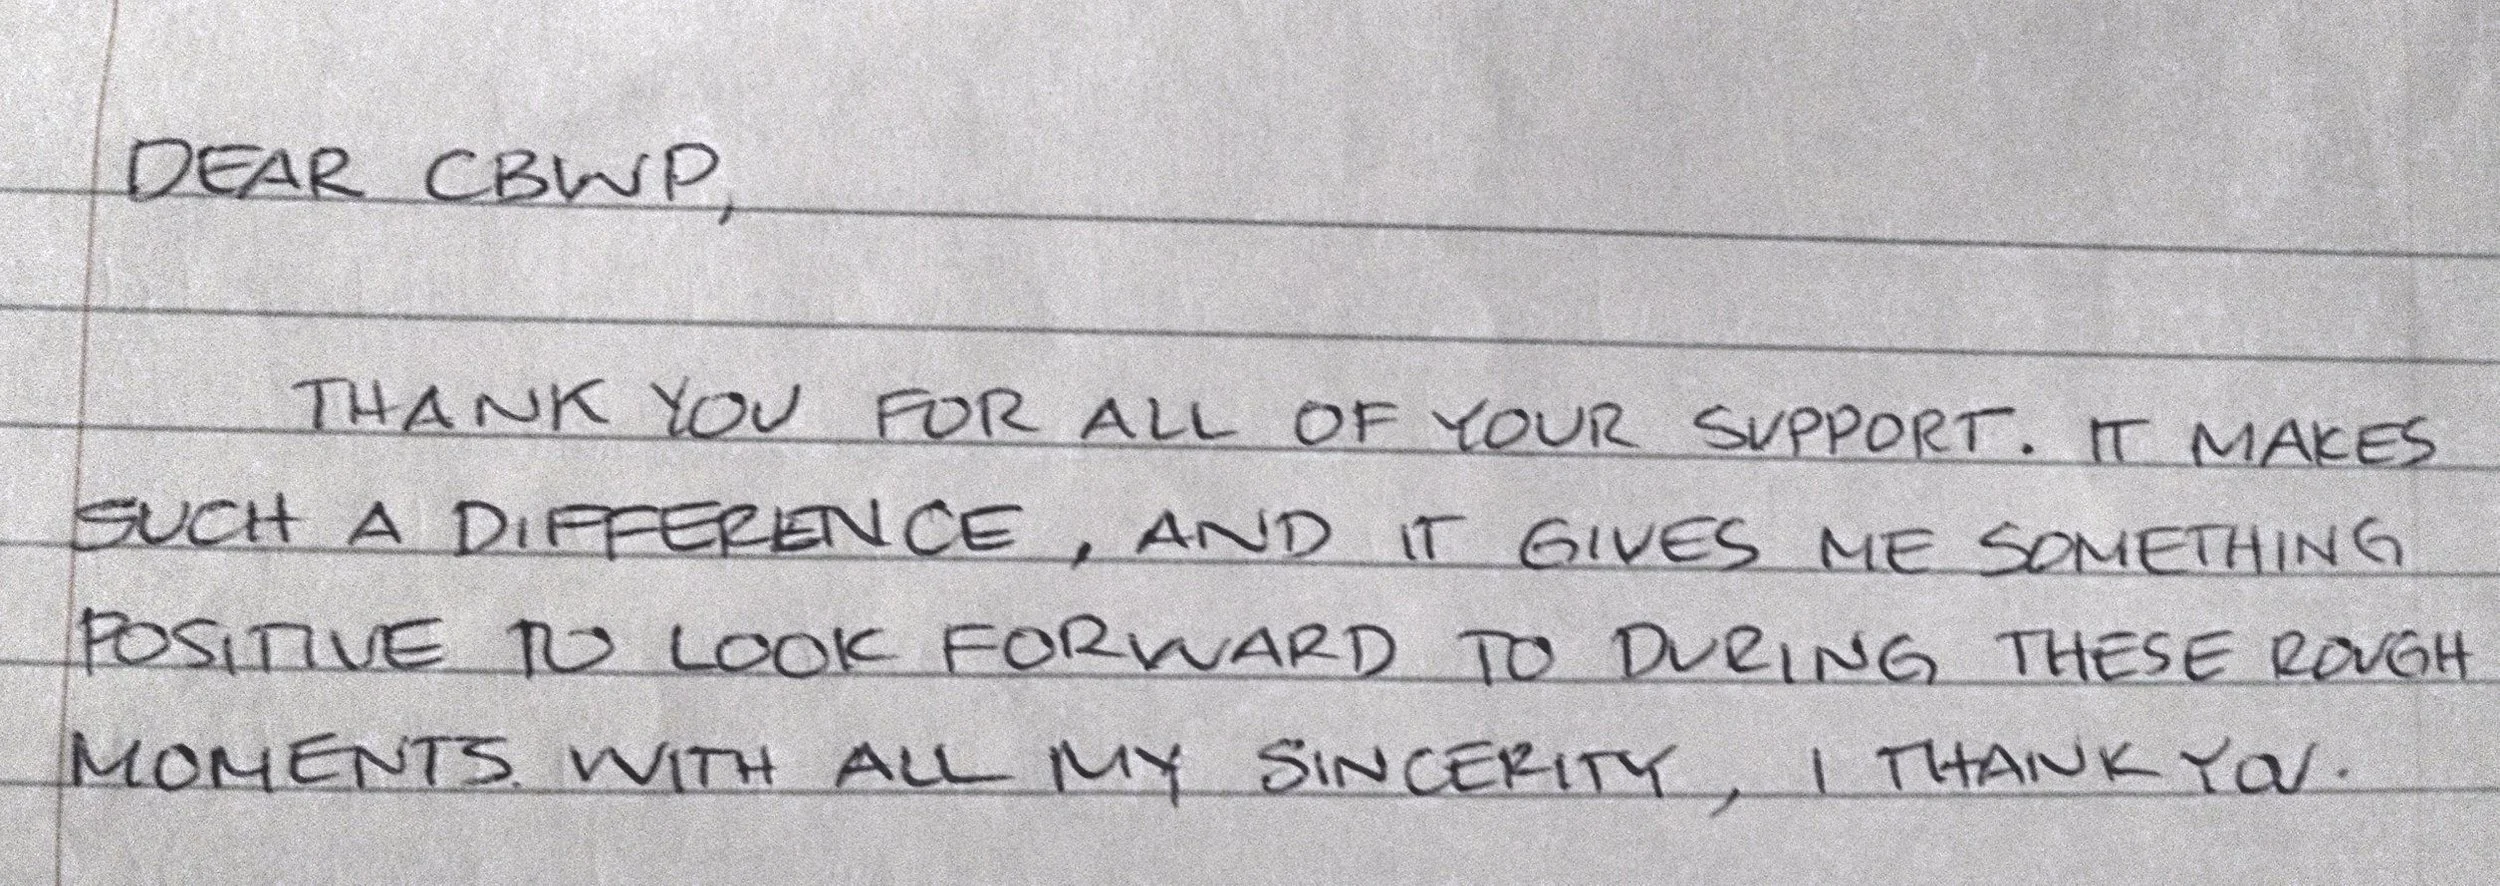 DEAR CBWP,
THANK YOU FOR ALL OF YOUR SUPPORT. IT MAKES
SUCH A DIFFERENCE, AND IT GIVES ME SOMETHING
POSITIVE TO LOOK FORWARD TO DURING THESE ROUGH
MOMENTS. WITH ALL MY SINCERITY, I THANK YOU.